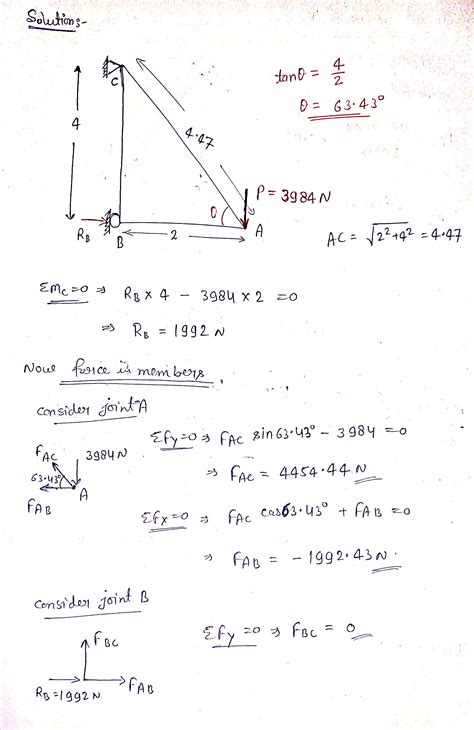 Solution:-
C
4
4.47
tanθ = 4/2
θ = 63.43°
P = 3984 N
θ
A
R_B
B
2
AC = √2²+4² = 4.47
ΣM_C=0 ⇒ R_B × 4 - 3984 × 2 = 0
⇒ R_B = 1992 N
Now force in members.
consider joint A
F_AC
3984 N
63.43°
A
F_AB
ΣFy=0 ⇒ F_AC sin63.43° - 3984 = 0
⇒ F_AC = 4454.44 N
ΣFx=0 ⇒ F_AC cos63.43° + F_AB = 0
⇒ F_AB = - 1992.43 N.
consider joint B
F_BC
R_B=1992 N
F_AB
ΣFy=0 ⇒ F_BC = 0